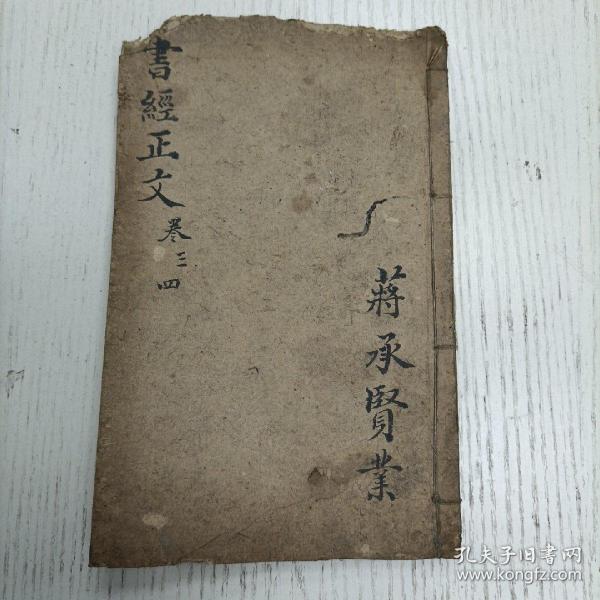 書經正文
卷三四
蔣承賢業
孔夫子旧書网
www.kongfz.com